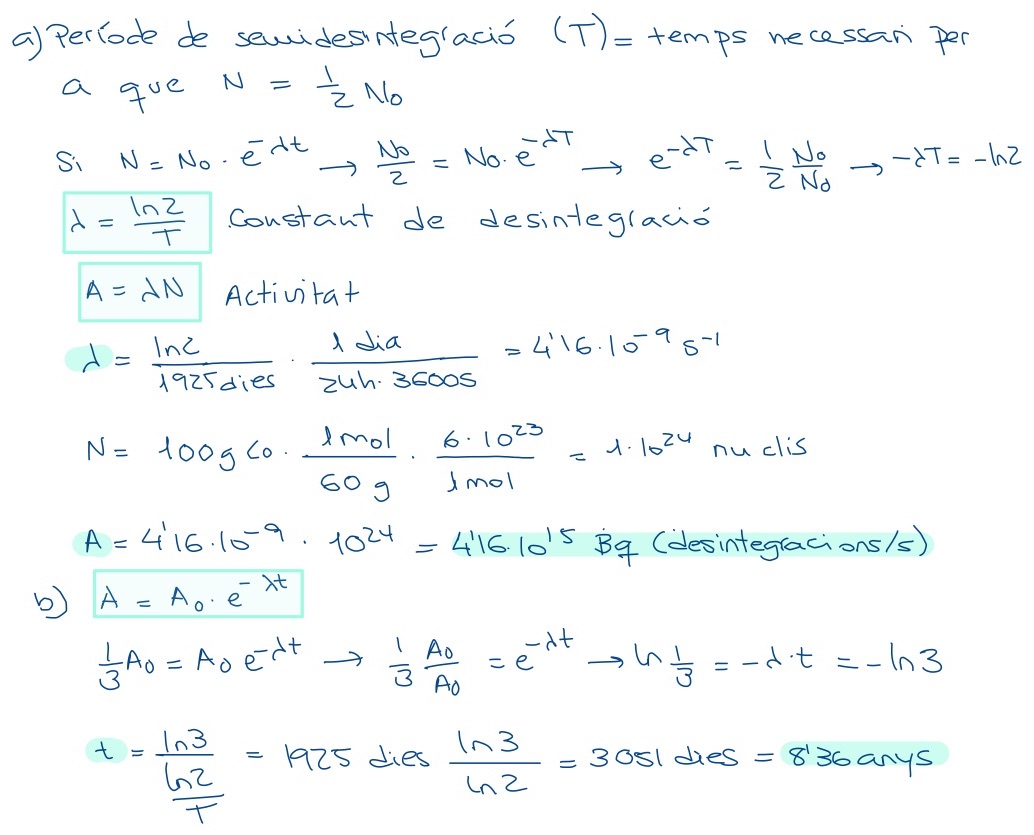 a) Període de semidesintegració (T) = temps necessari per
a que N = 1/2 No
Si N = No · e^-λt → No/2 = No · e^-λT → e^-λT = 1/2 No/No → -λT = -ln2
λ = ln2/T Constant de desintegració
A = λN Activitat
λ = ln2/1925 dies · 1 dia/24h · 3600s = 4'16·10^-9 s^-1
N = 100g Co · 1mol/60 g · 6·10^23/1mol = 1·10^24 nuclis
A = 4'16·10^-9 · 10^24 = 4'16·10^15 Bq (desintegracions/s)
b) A = Ao · e^-λt
1/3 Ao = Ao e^-λt → 1/3 Ao/Ao = e^-λt → ln 1/3 = -λ·t = -ln3
t = ln3/(ln2/T) = 1925 dies ln3/ln2 = 3051 dies = 8'36 anys